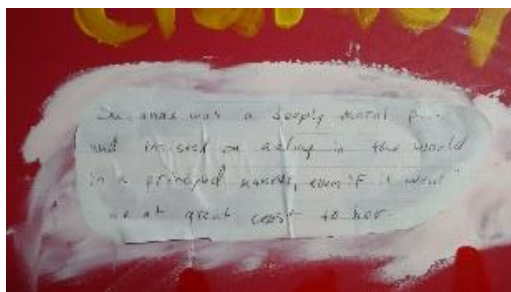 was a deeply moral
and insisted on acting in the world
in a principled manner, even if it
at great cost to her